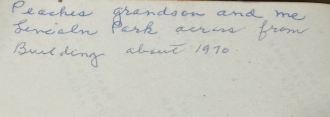 Peaches grandson and me
Lincoln Park across from
Building about 1970